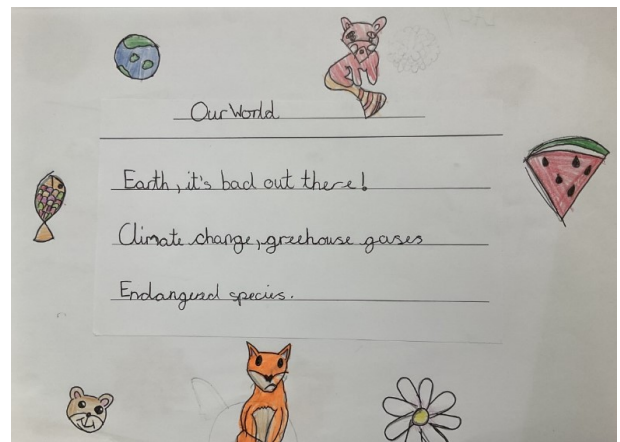 Our World
Earth, it's bad out there!
Climate change, greehouse gases
Endangered species.